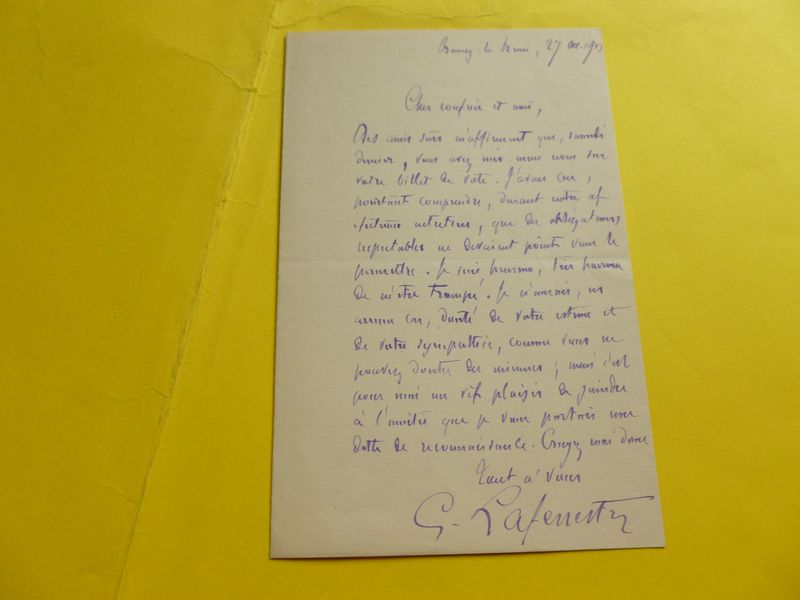 Bourg-la-Reine, 27 Oct. 190
Cher confrère et ami,
Des amis sûrs m'affirment que, samedi
dernier, vous avez mis mon nom sur
votre billet de vote. J'avais cru,
pourtant comprendre, durant notre af-
fectueux entretien, que des obligations
respectables ne devaient point vous le
permettre. Je suis heureux, très heureux
de m'être trompé. Je n'aurais, en
aucun cas, douté de votre estime et
de votre sympathie, comme vous ne
pouvez douter des miennes ; mais c'est
pour moi un vif plaisir de joindre
à l'amitié que je vous portais une
dette de reconnaissance. Croyez moi donc
Tout à vous
G. Lafenestre